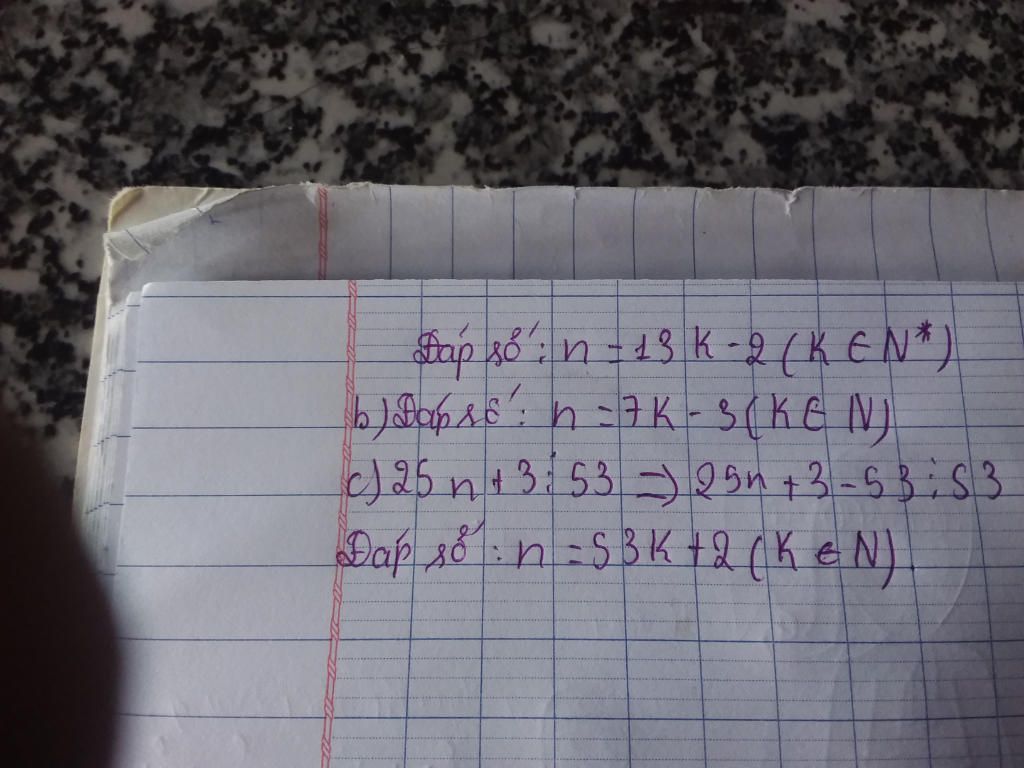 Đáp số: n = 13 K - 2 ( K ∈ N*)
b) Đáp số: n = 7K - 3 ( K ∈ N)
c) 25 n + 3 ⋮ 53 => 25n + 3 - 53 ⋮ 53
Đáp số: n = 53K + 2 ( K ∈ N).